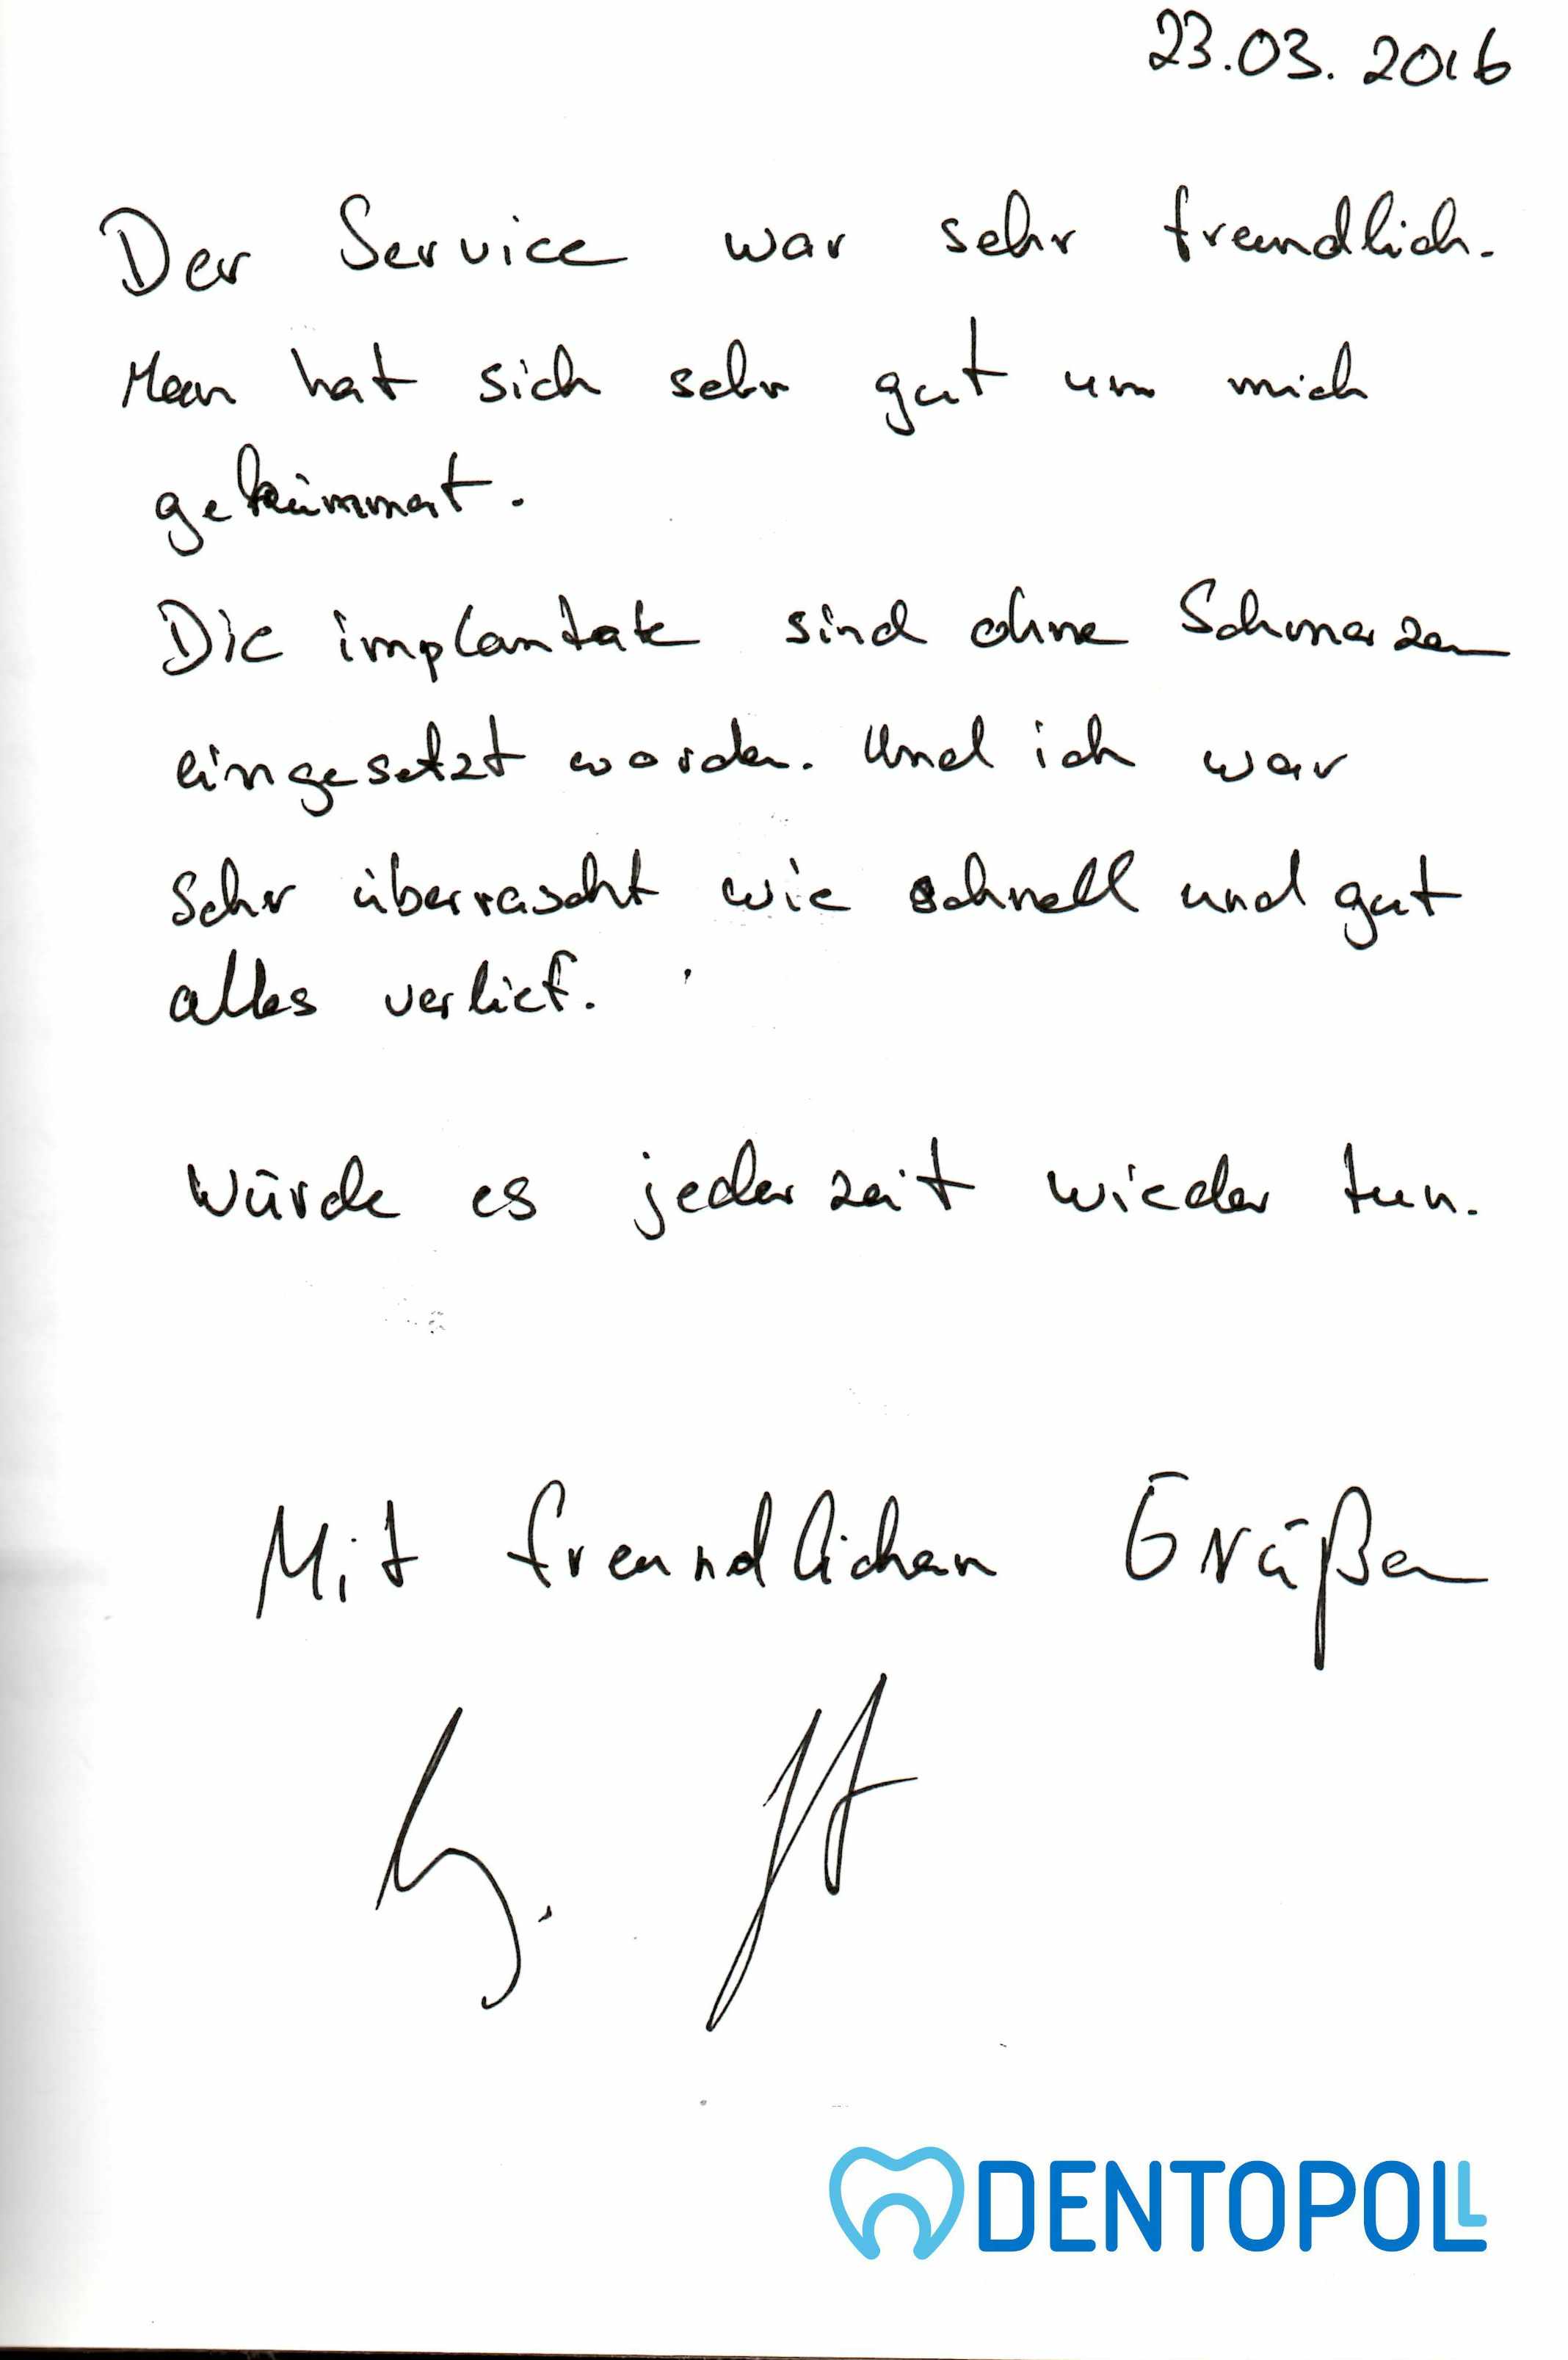 23.03.2016
Der Service war sehr freundlich.
Man hat sich sehr gut um mich
gekümmert.
Die implantate sind ohne Schmerzen
eingesetzt worden. Und ich war
Sehr überrascht wie schnell und gut
alles verlief.
Würde es jederzeit wieder tun.
Mit freundlichen Grüßen
DENTOPOLL